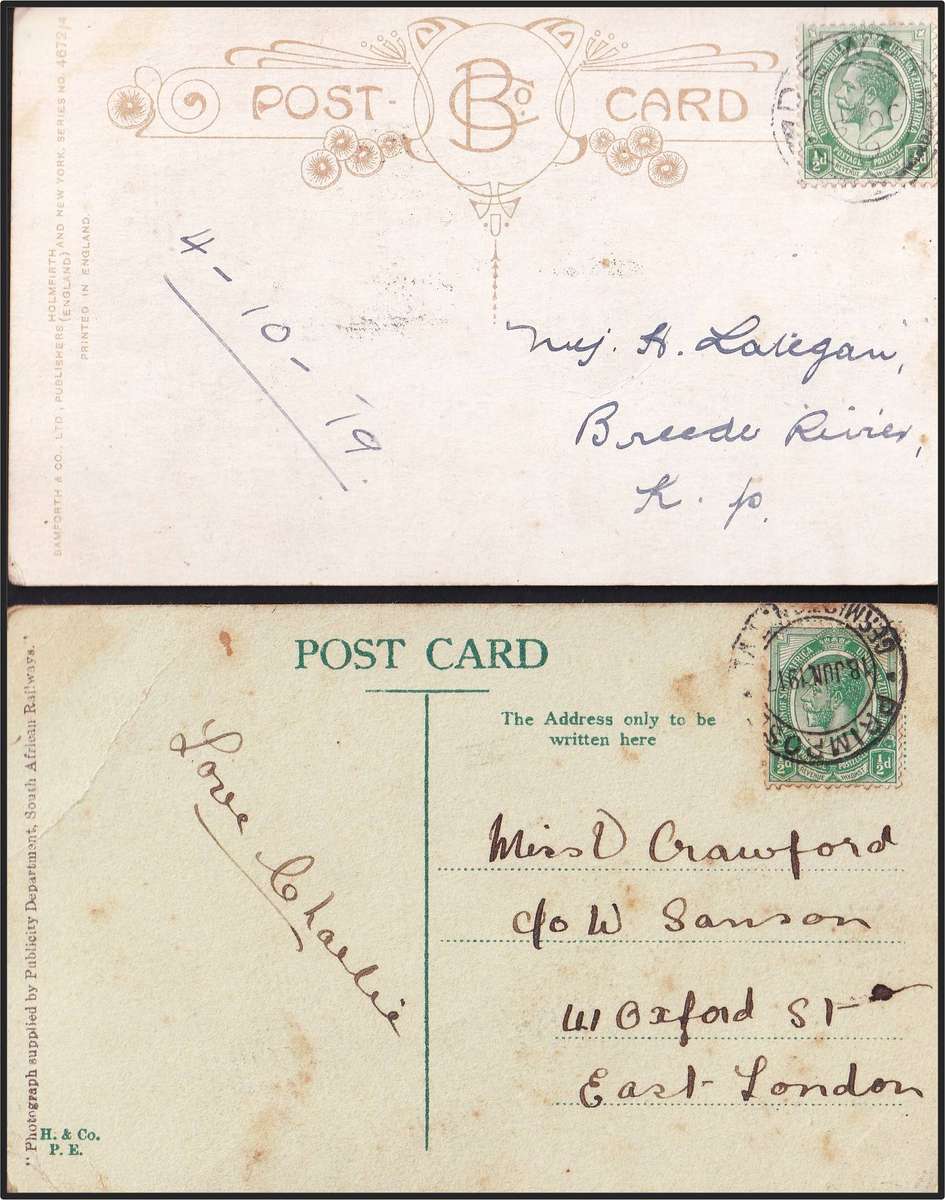 POST- BCo CARD
UNION OF SOUTH AFRICA UNIE VAN ZUID AFRIKA
½d POSTAGE POSTZEGEL ½d
REVENUE INKOMST
BAMFORTH & CO. LTD., PUBLISHERS HOLMFIRTH (ENGLAND) AND NEW YORK, SERIES NO. 4672/4
PRINTED IN ENGLAND.
4-10-'19.
Mej. H. Lategan,
Breede Rivier,
K. p.
POST CARD
The Address only to be
written here
GERMISTON
18 JUN 1917
PRIMROSE
½d POSTAGE ½d
REVENUE INKOMST
"Photograph supplied by Publicity Department, South African Railways."
Love Charlie
Miss D Crawford
c/o W Sanson
Oxford St
East London
H. & Co.
P. E.